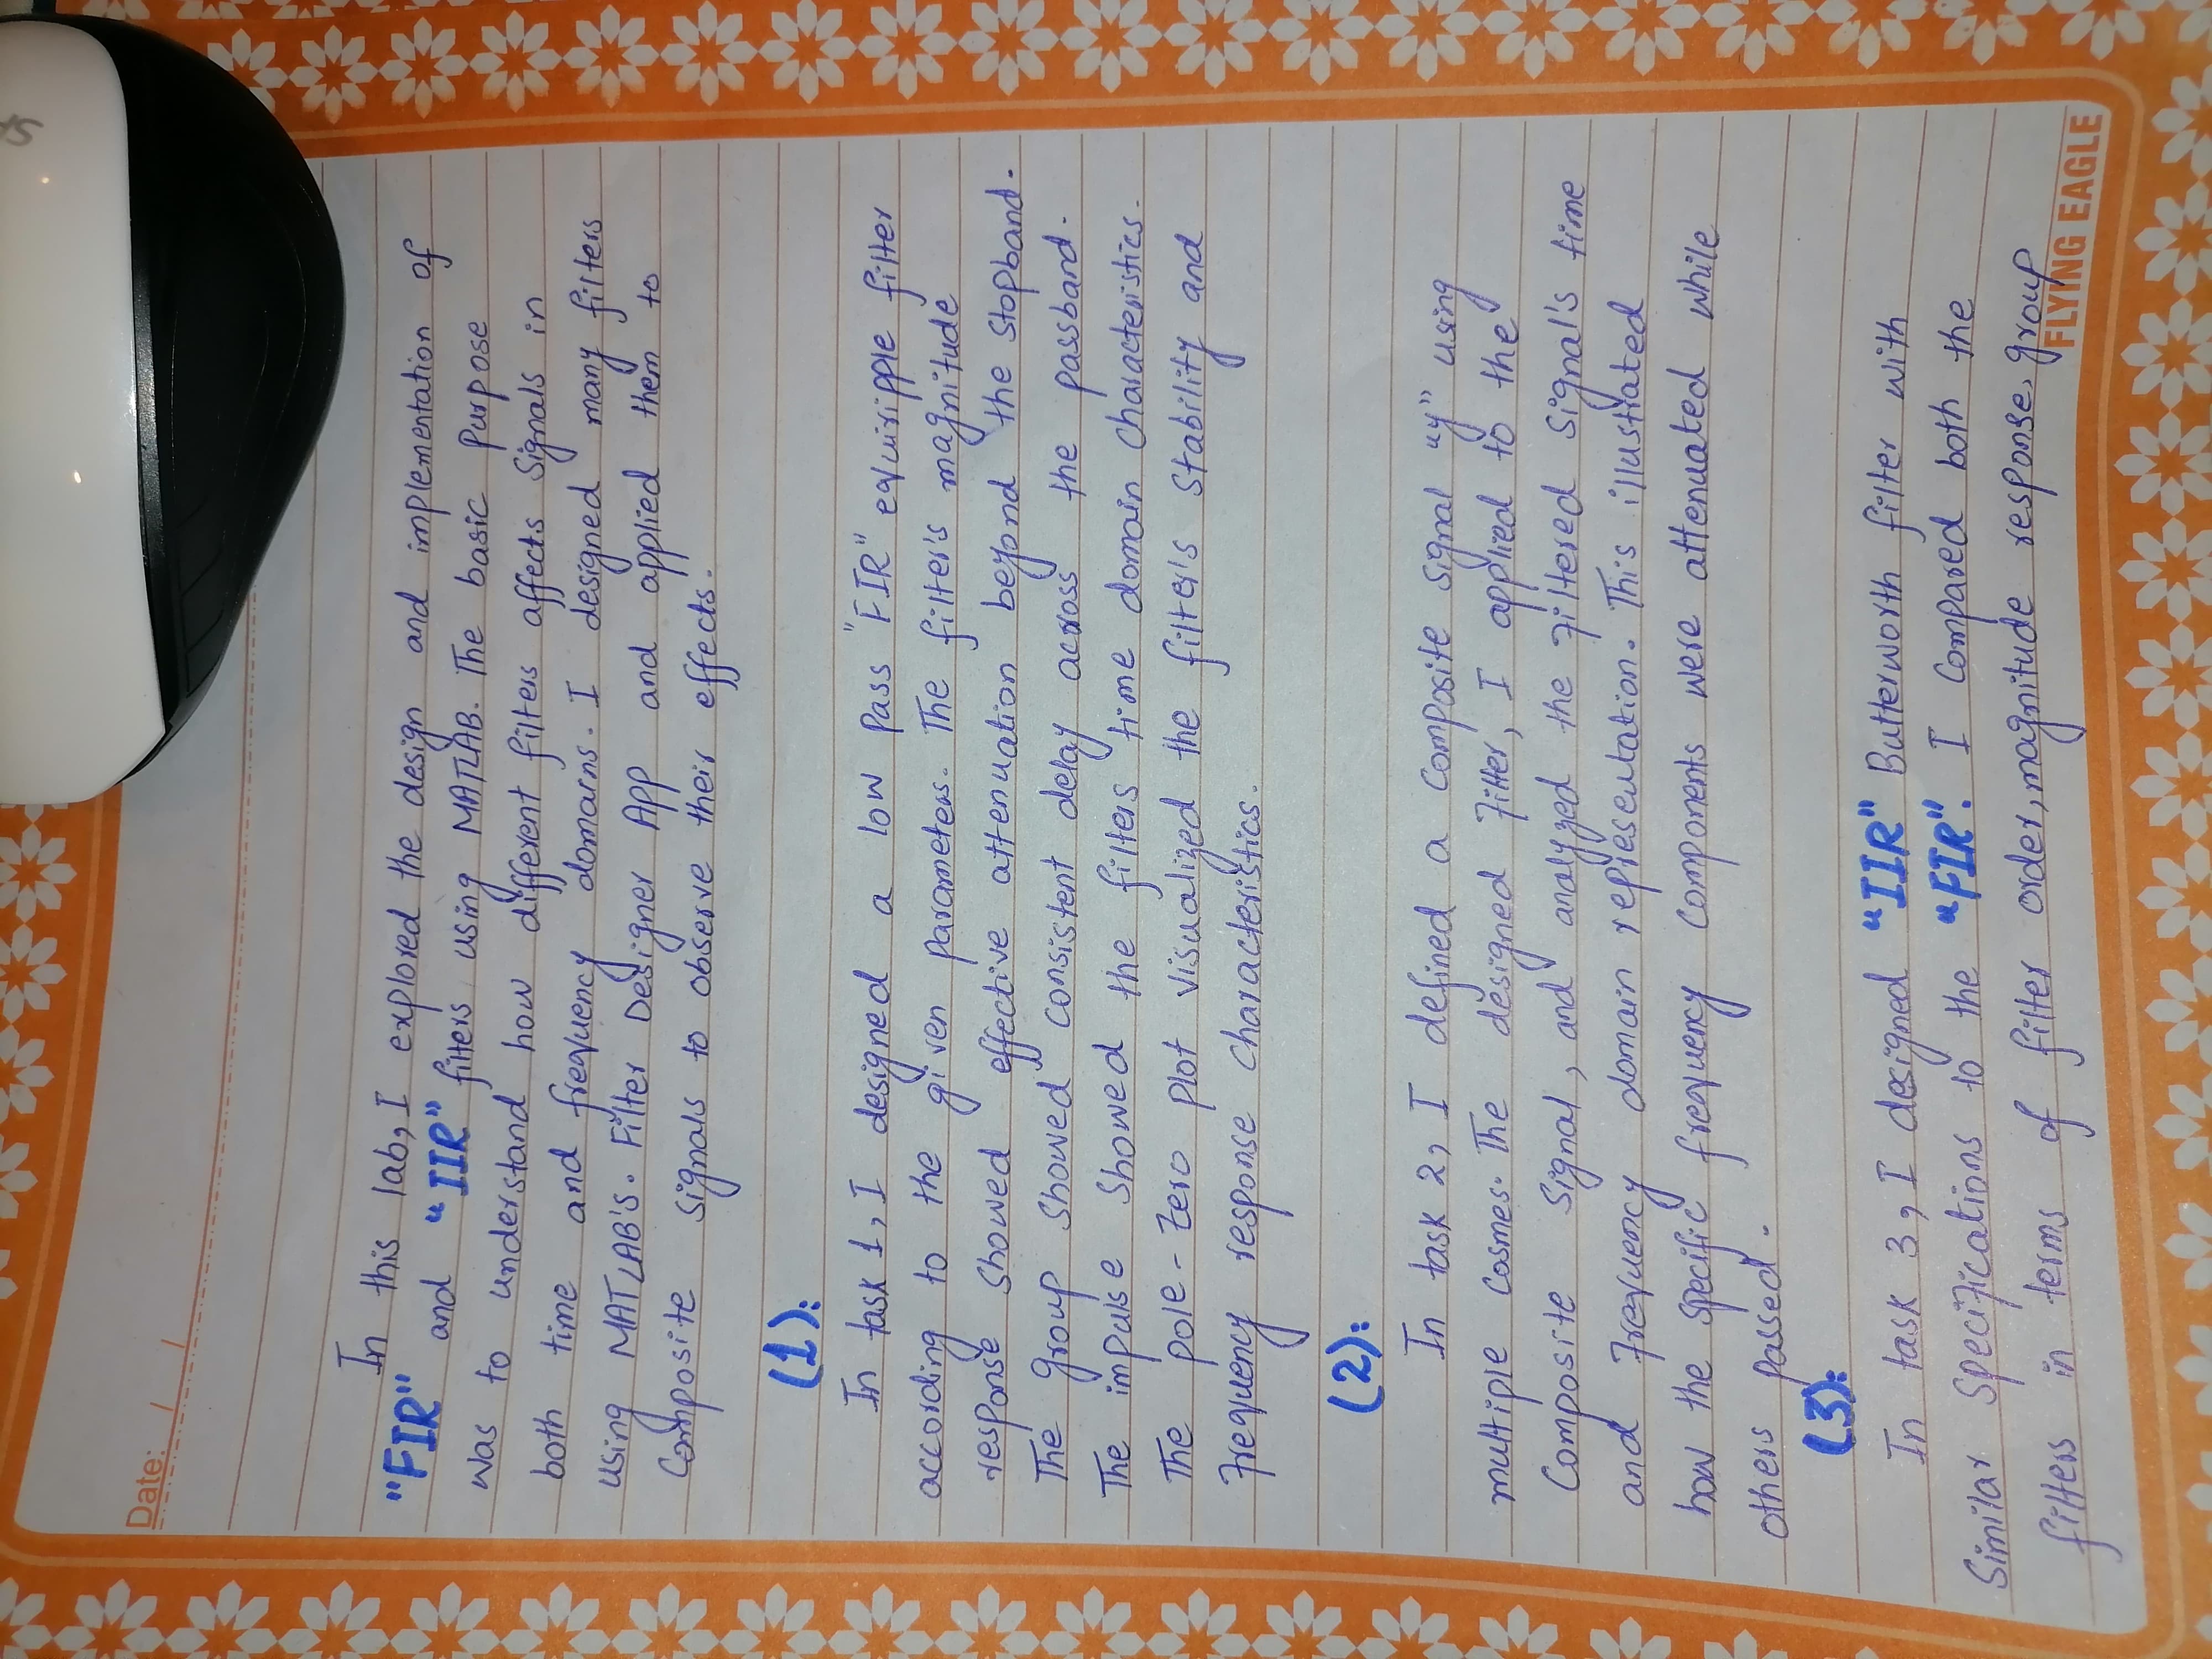 Date: / /
In this lab, I explored the design and implementation of
"FIR" and "IIR" filters using MATLAB. The basic Purpose
was to understand how different filters affects Signals in
both time and frequency domains. I designed many filters
using MATLAB'S. Filter Designer App and applied them to
Composite signals to observe their effects.
(1):
In task 1, I designed a low Pass "FIR" equiripple filter
according to the given parameters. The filter's magnitude
response Showed effective attenuation beyond the stopband.
The group Showed consistent delay across the passband.
The impulse Showed the filters time domain Characteristics.
The pole-Zero plot visualized the filter's stability and
Frequency response Characteristics.
(2):
In task 2, I defined a Composite Signal "y" using
multiple Cosmes. The designed Filter, I applied to the
Composite Signal, and analyzed the Filtered Signal's time
and Frequency domain representation. This illustrated
how the specific frequency Components were attenuated while
others passed.
(3):
In task 3, I designed "IIR" Butterworth filter with
Similar Specifications to the "FIR". I Compared both the
filters in terms of filter order, magnitude response, group
FLYING EAGLE